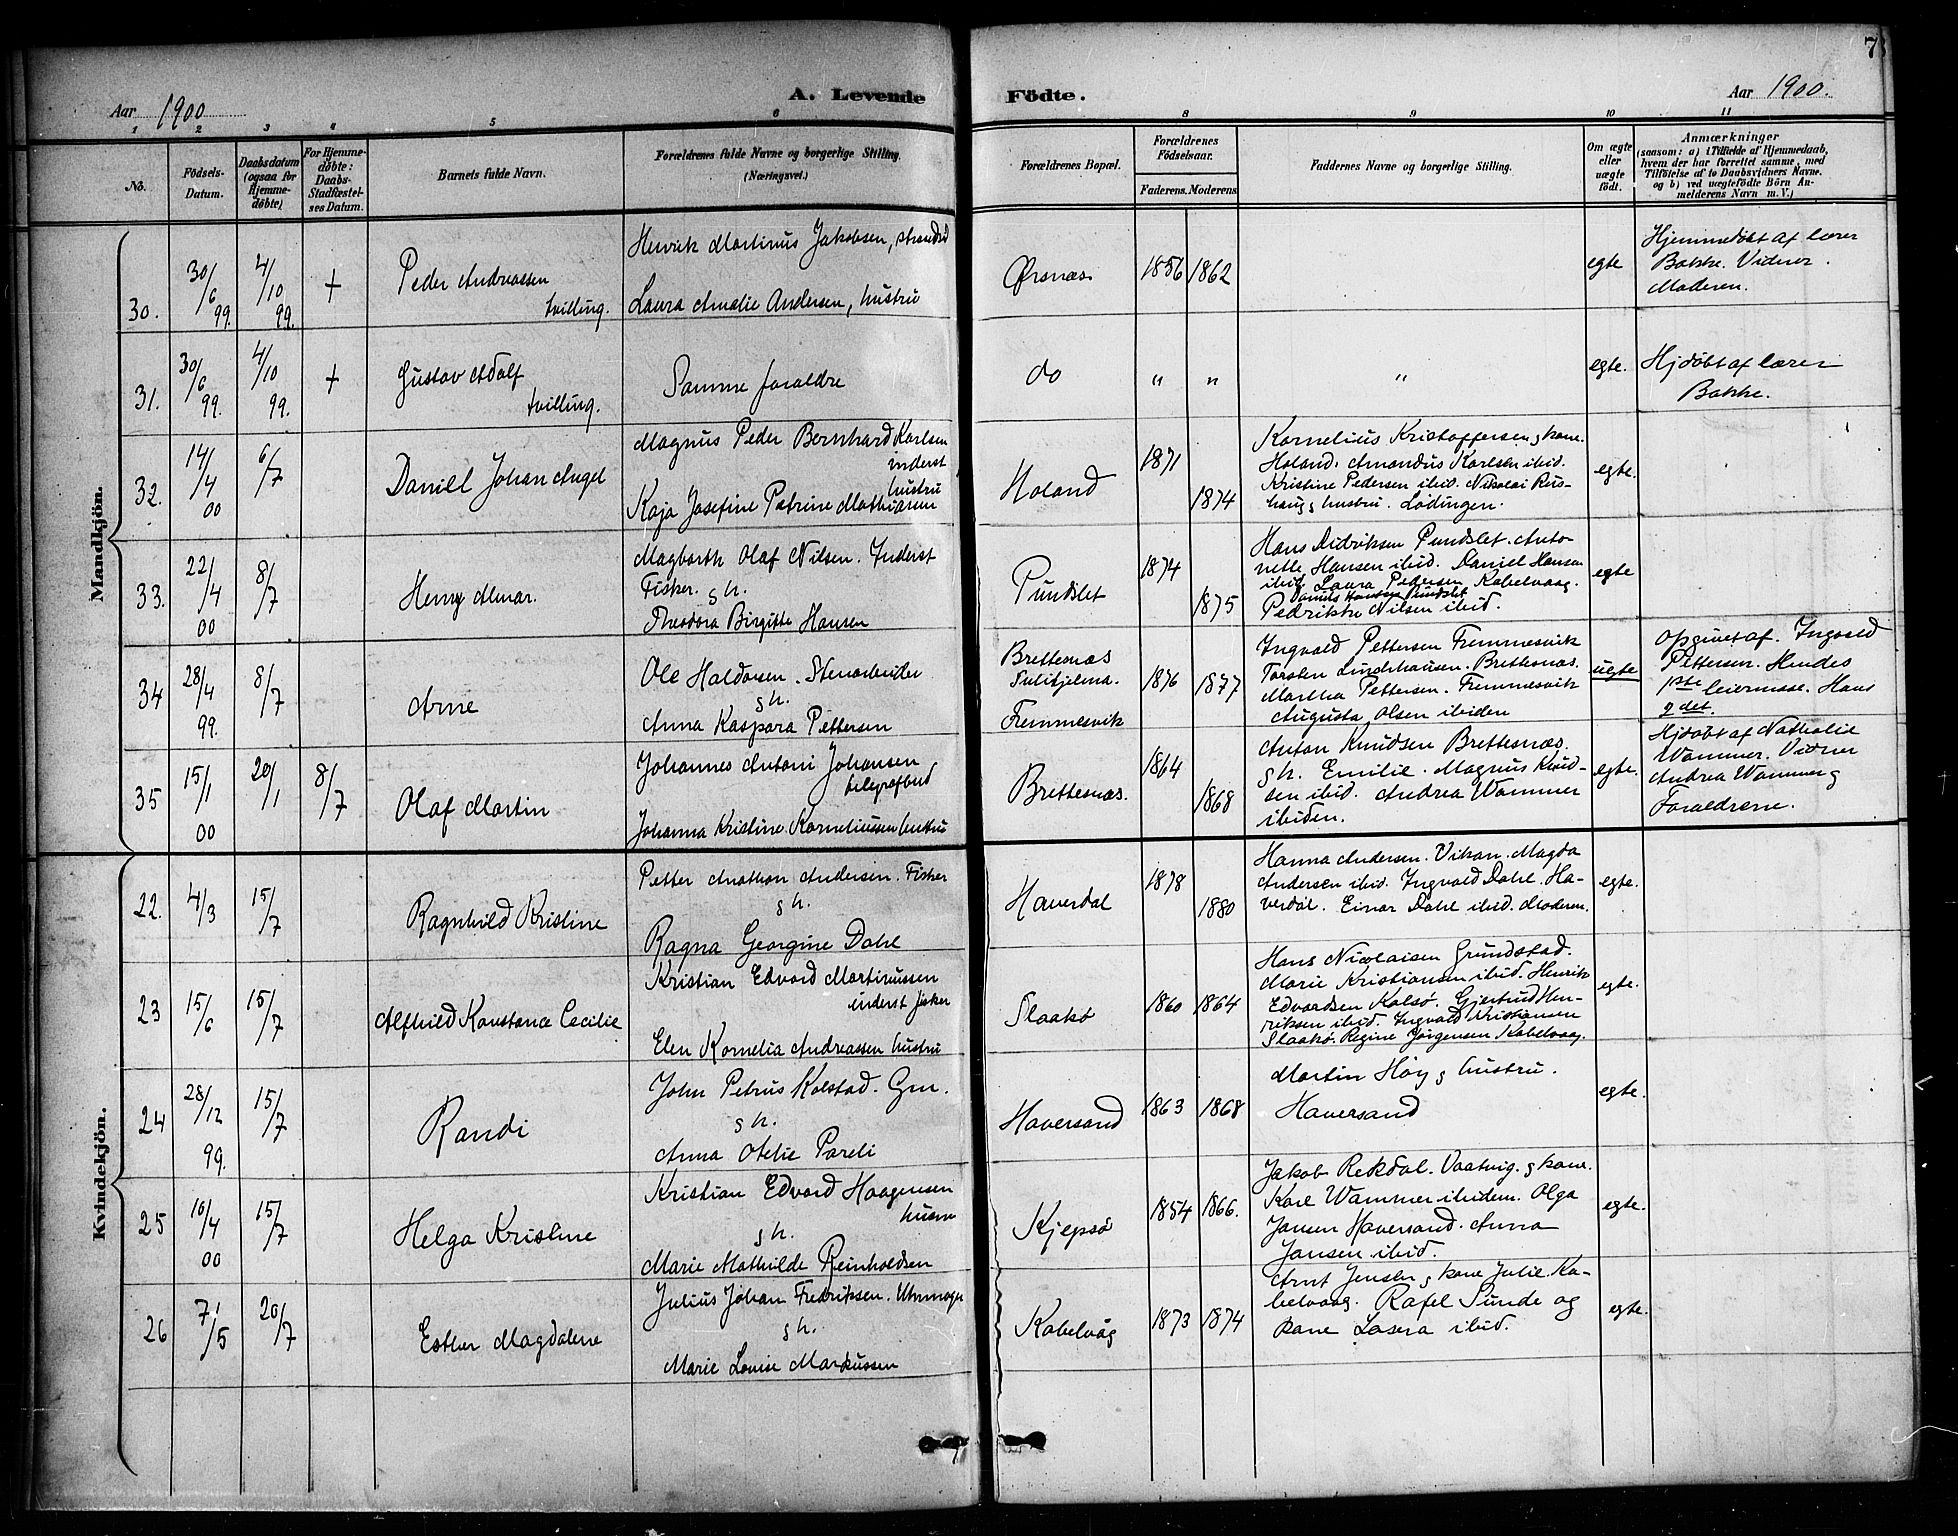 7
Aar 1900
A. Levende
Födte.
Aar 1900.
1 2 3 4 5 6 8 9 10 11
No.
Födsels-
Datum.
Daabsdatum
(ogsaa for
Hjemme-
døbte)
For Hjemme-
døbte:
Daabs-
Stadfæstel-
ses Datum.
Barnets fulde Navn.
Forældrenes fulde Navne og borgerlige Stilling.
(Næringsvei.)
Forældrenes Bopæl.
Forældrenes
Födselsaar.
Faderens. Moderens.
Faddernes Navne og borgerlig Stilling.
Om ægte
eller
uægte
födt.
Anmærkninger
(saasom: a) i Tilfælde af Hjemmedaab,
hvem der har forrettet samme, med
Tilföielse af to Daabsvidners Navne.
og b) ved uægtefödte Börn An-
melderens Navn m. V.)
Mandkjön.
30.
30/6 99.
4/10 99.
+
Peder Andreassen
tvilling.
Henrik Martinus Jakobsen, strandsid
Laura Amalie Andersen, hustru
Ørsnæs
1856 1862
egte
Hjemmedøbt af lærer
Bakke. Vidner.
Moderen.
31.
30/6 99.
4/10 99.
+
Gustav Adolf
tvilling.
Samme foraldre
do
" "
"
egte.
Hjdøbt af lærer
Bakke.
32.
14/4 00
6/7
Daniel Johan Angel
Magnus Peder Bernhard Karlsen
inderst
hustru
Kaja Josefine Petrine Mathiasen
Holand
1871
1874
Kornelius Kristoffersen g kone.
Holand. Amandus Karlsen ibid.
Kristine Pedersen ibid. Nikolai Rus-
haug g hustru. Lødingen.
egte.
33.
22/4 00
8/7
Henry Almar.
Magborth Olaf Nilsen. Inderst
Fisker. g h.
Theodora Birgitte Hansen
Pundslet
1874
1875
Hans Didriksen Pundslet. Anto-
nette Hansen ibid. Daniel Hansen
ibid. Laura Pedersen Kabelvaag.
Pundslet
Pedrikke Nilsen ibid.
egte
34
28/4 99.
8/7
Arne
Ole Haldorsen. Stenarbeider
g h.
Anna Kaspara Pettersen
Brettesnæs
Sulitjelma.
Fremmesvik
1876 1877
Ingvald Pettersen Fremmesvik
Torsten Brettesnæs.
Martha Pettersen. Fremmesvik
Augusta Olsen ibiden
uegte
Opgivet af. Ingvald
Pettersen. Hendes
1ste leiermaal. Hans
2 det.
35
15/1 00
20/1
8/7
Olaf Martin
Johannes Antoni Johansen
telegrafbud
Johanna Kristine Korneliussen hustru
Brettesnæs.
1864
1868
Anton Knudsen Brettesnæs.
g h. Emilie. Magnus Knud-
sen ibid. Andrea Wammer
ibiden.
egte.
Hjdøbt af Nathalie
Wammer. Vidner
Andrea Wammer g
Foraldrene.
Kvindekjön.
22.
4/3
15/7
Ragnhild Kristine
Petter Anathon Andersen. Fisker
g h.
Ragna Georgine Dahl
Haverdal
1878
1880
Hanna Andersen. Vikan. Magda
Andersen ibid. Ingvald Dahl. Ha-
verdal. Einar Dahl ibid. Moderen.
egte.
23
15/6
15/7
Alfhild Konstance Cecilie
Kristian Edvard Martinussen
inderst fisker
Elen Kornelia Andreassen hustru
Slaakø
1860 1864
Hans Nicolaisen Grundstad.
Marie Kristiansen ibid. Henrik
Edvardsen Kalsø. Gjertrud Hen-
riksen ibid. Ingvald Kristiansen
Slaakø. Regine Jørgensen Kabelvaag.
egte.
24
28/12 99.
15/7
Randi
John Petrus Kolstad. Gm.
g h.
Anna Otelie Pareli
Haversand
1863 1868
Martin Høy g hustru.
Haversand
egte.
25
10/4 00
15/7
Helga Kristine
Kristian Edvard Haagensen
husm
g h.
Marie Mathilde Reinholdsen
Kjepsø
1854 1866.
Jakob Rekdal. Vaatvig. g kone.
Karl Wammer ibidem. Olga
Jansen Haversand. Anna
Jansen ibid.
egte.
26
7/5
20/7
Esther Magdalene
Julius Johan Fredriksen. Uhrmager
g h.
Marie Louise Markussen
Kabelvåg
1873 1874
Arnt Jensen g kone Julie. Ka-
belvaag. Rafel Sunde og
kone Lasera ibid.
egte.